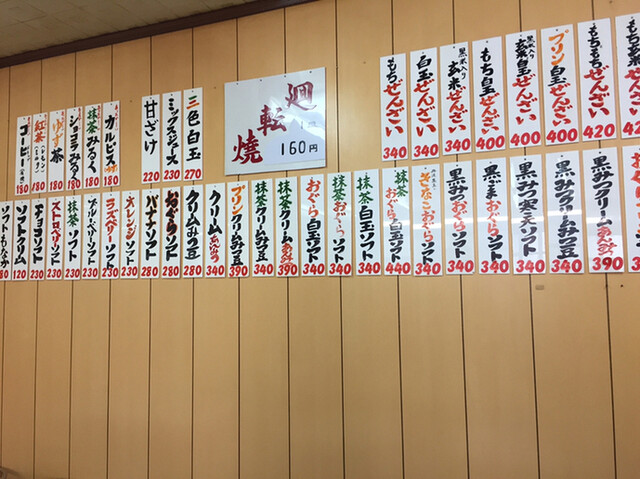 もちぜんざい
340
白玉ぜんざい
340
黒米入り
玄米ぜんざい
340
もち白玉ぜんざい
400
黒米入り
玄米白玉ぜんざい
400
プリン白玉ぜんざい
400
もちもちぜんざい
420
420
廻転焼
160円
三色白玉
270
ミックスジュース
230
甘ざけ
220
カルピス
180
抹茶みるく
180
ショコラみるく
180
ゆず茶
180
紅茶
180
コーヒー
180
黒みつクリームあんみつ
390
黒みつクリームみつ豆
340
黒みつ寒天ソフト
340
黒ごまおぐらソフト
340
黒みつおぐらソフト
340
きなこおぐらソフト
340
抹茶おぐら白玉ソフト
440
抹茶白玉ソフト
340
抹茶おぐらソフト
340
おぐら白玉ソフト
340
抹茶クリームあんみつ
390
抹茶クリームみつ豆
340
プリンクリームみつ豆
390
クリームあんみつ
340
クリームみつ豆
280
おぐらソフト
280
バナナソフト
280
オレンジソフト
230
ラズベリーソフト
230
ブルーベリーソフト
230
抹茶ソフト
230
ストロベリーソフト
230
チョコソフト
230
ソフトクリーム
120
ソフトもなか